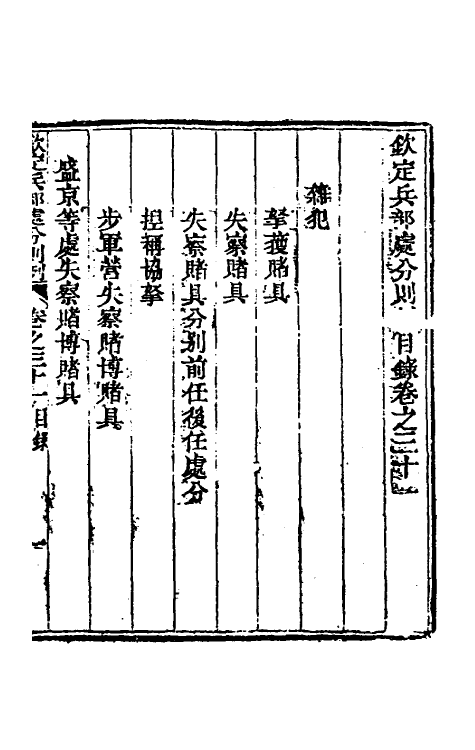 欽定兵部處分則例目錄卷之三十一
雜犯
拏獲賭具
失察賭具
失察賭具分別前任後任處分
捏稱協拏
步軍營失察賭博賭具
盛京等處失察賭博賭具
欽定兵部處分則例 卷之三十一目錄 一